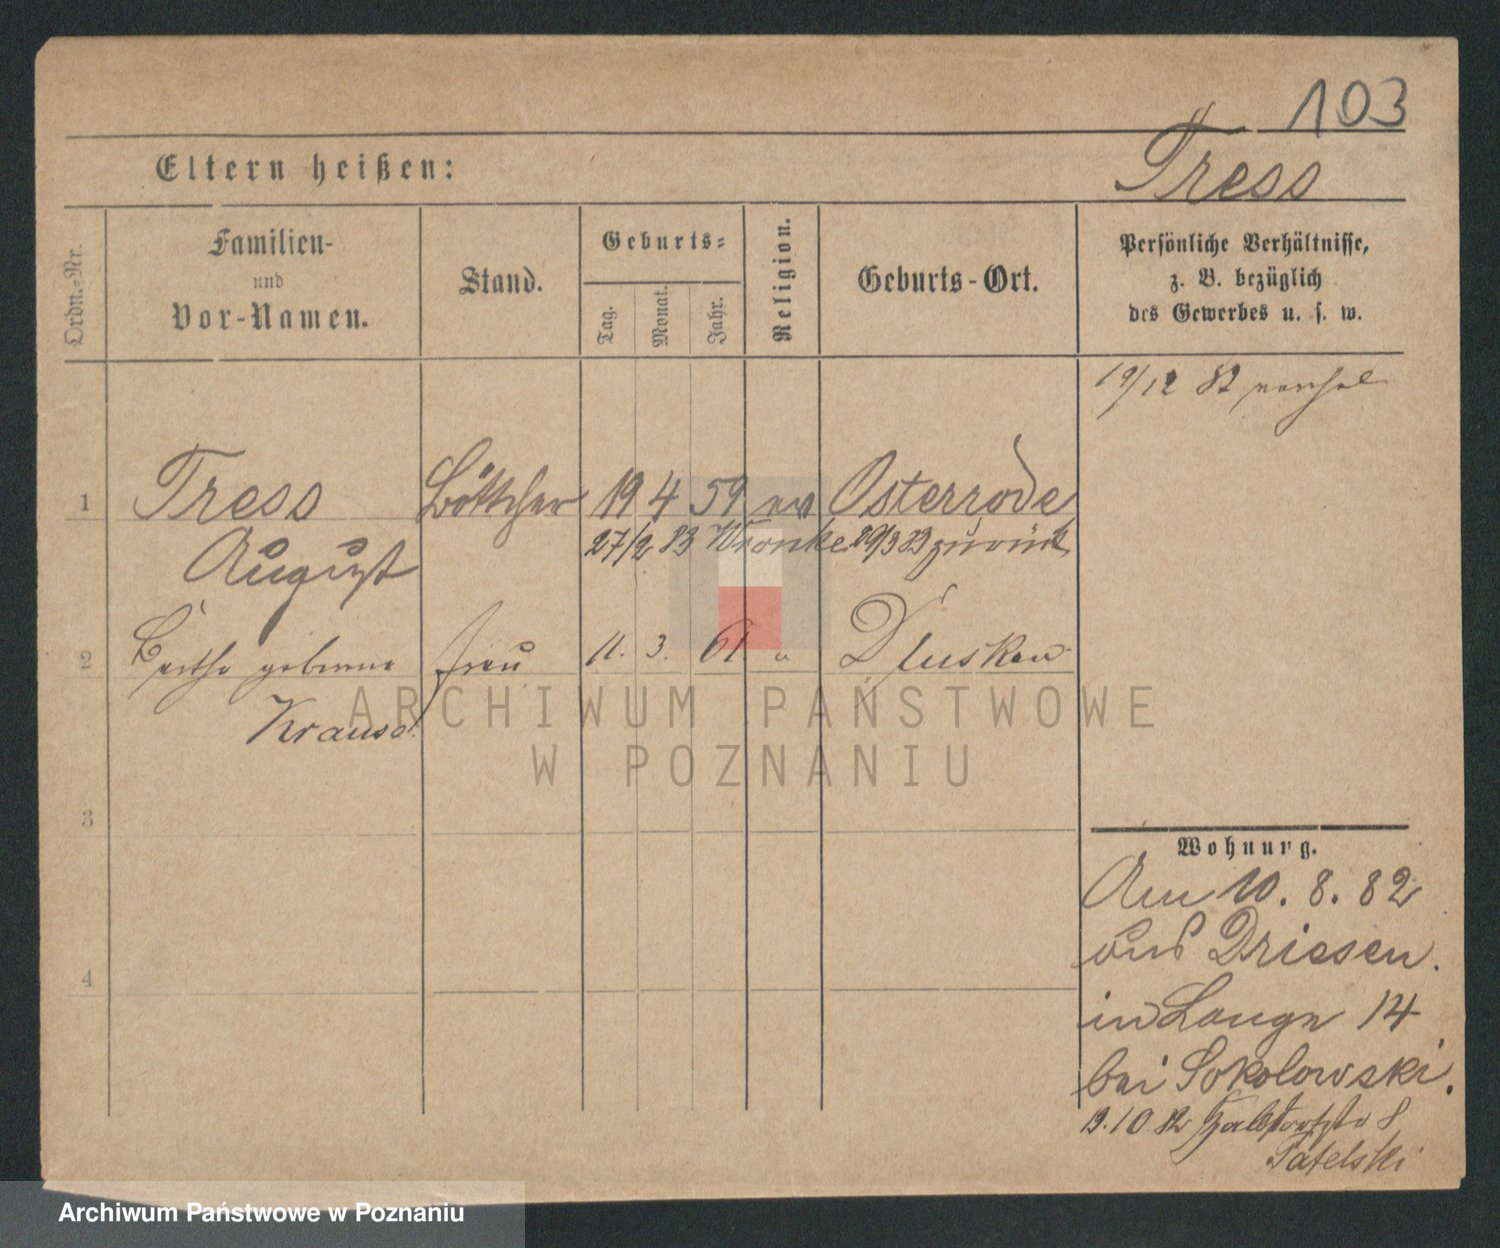 103
Eltern heißen:
Tress
Ordn.-Nr.
Familien-
und
Vor-Namen.
Stand.
Geburts-
Tag.
Monat.
Jahr.
Religion.
Geburts-Ort.
Persönliche Verhältnisse,
z. B. bezüglich
des Gewerbes u. s. w.
19/12 82
1 Tress Böttcher 19 4 59 ev Osterrode
August 27/2 83 Wronke 29/3 83 zurück
2 Bertha geborene Frau 11. 3. 61 " Dlusken
Krause
ARCHIWUM PAŃSTWOWE
W POZNANIU
3
4
Wohnung.
Am 10. 8. 82
aus Driesen.
in Lange 14
bei Sokolowski.
19. 10 82 Halbdorfstr 8
Archiwum Państwowe w Poznaniu